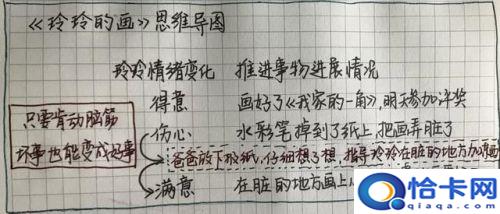 《玲玲的画》思维导图
玲玲情绪变化 推进事物进展情况
得意 画好了《我家的一角》,明天参加评奖
只要肯动脑筋
伤心 水彩笔掉到了纸上,把画弄脏了
坏事也能变成好事
爸爸放下报纸,仔细想了想,指导玲玲在脏的地方加满画
满意 在脏的地方画上
恰卡网
qiaqa.com